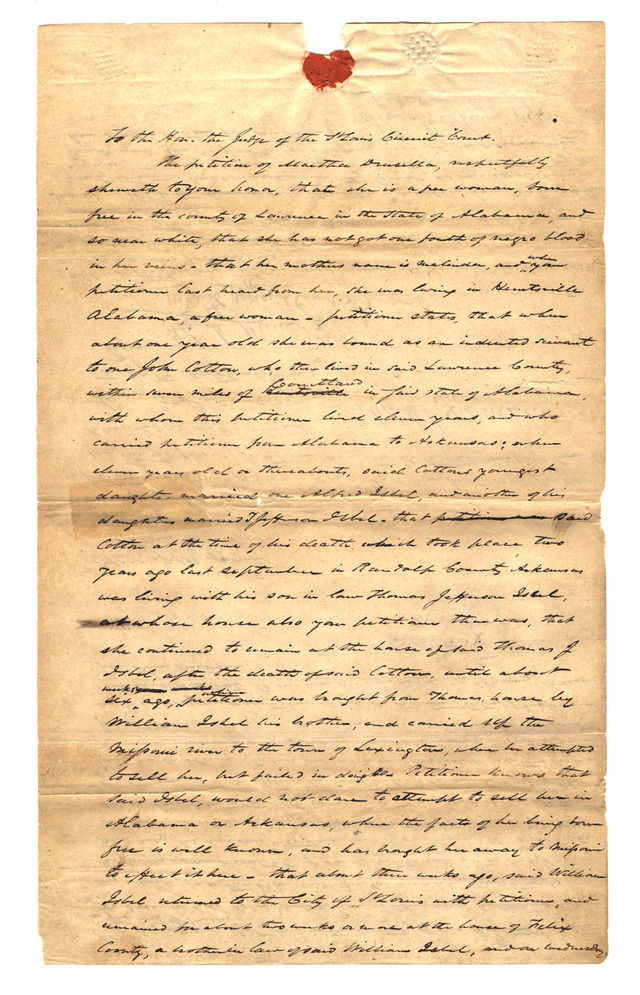 To the Hon. the Judge of the St Louis Circuit Court.
The petition of Martha Drusella, respectfully
sheweth to your honor, that she is a free woman, born
free in the county of Lawrence in the State of Alabama, and
so near white, that she has not got one fourth of negro blood
in her veins - that her mothers name is malinda, and when your
petitioner last heard from her, she was living in Huntsville
Alabama, a free woman - petitioner states, that when
about one year old she was bound as an indented servant
to one John Cotton, who then lived in said Lawrence County,
within seven miles of Huntsville Courtland in said state of Alabama,
with whom this petitioner lived eleven years, and who
carried petitioner from Alabama to Arkansas; when
eleven years old or thereabouts, said Cottons youngest
daughter married one Alfred Isbel, and another of his
daughters married T Jefferson Isbel - that petitioner was said
Cotton at the time of his death, which took place two
years ago last september in Randolf County Arkansas
was living with his son in law Thomas Jefferson Isbel,
at whose house also your petitioner then was, that
she continued to remain at the house of said Thomas J
Isbel, after the death of said Cotton, until about
six weeks ago, when petitioner was brought from Thomas, house by
William Isbel his brother, and carried up the
Missouri river to the town of Lexington, where he attempted
to sell her, but failed in doing so. Petitioner knows that
said Isbel, would not dare to attempt to sell her in
Alabama or Arkansas, where the facts of her being born
free is well known, and has brought her away to Missouri
to effect it here - that about three weeks ago, said William
Isbel returned to the City of St Louis with petitioner, and
remained for about two weeks or more at the house of Felix
Coonty, a brother in law of said William Isbel, and on wednesday